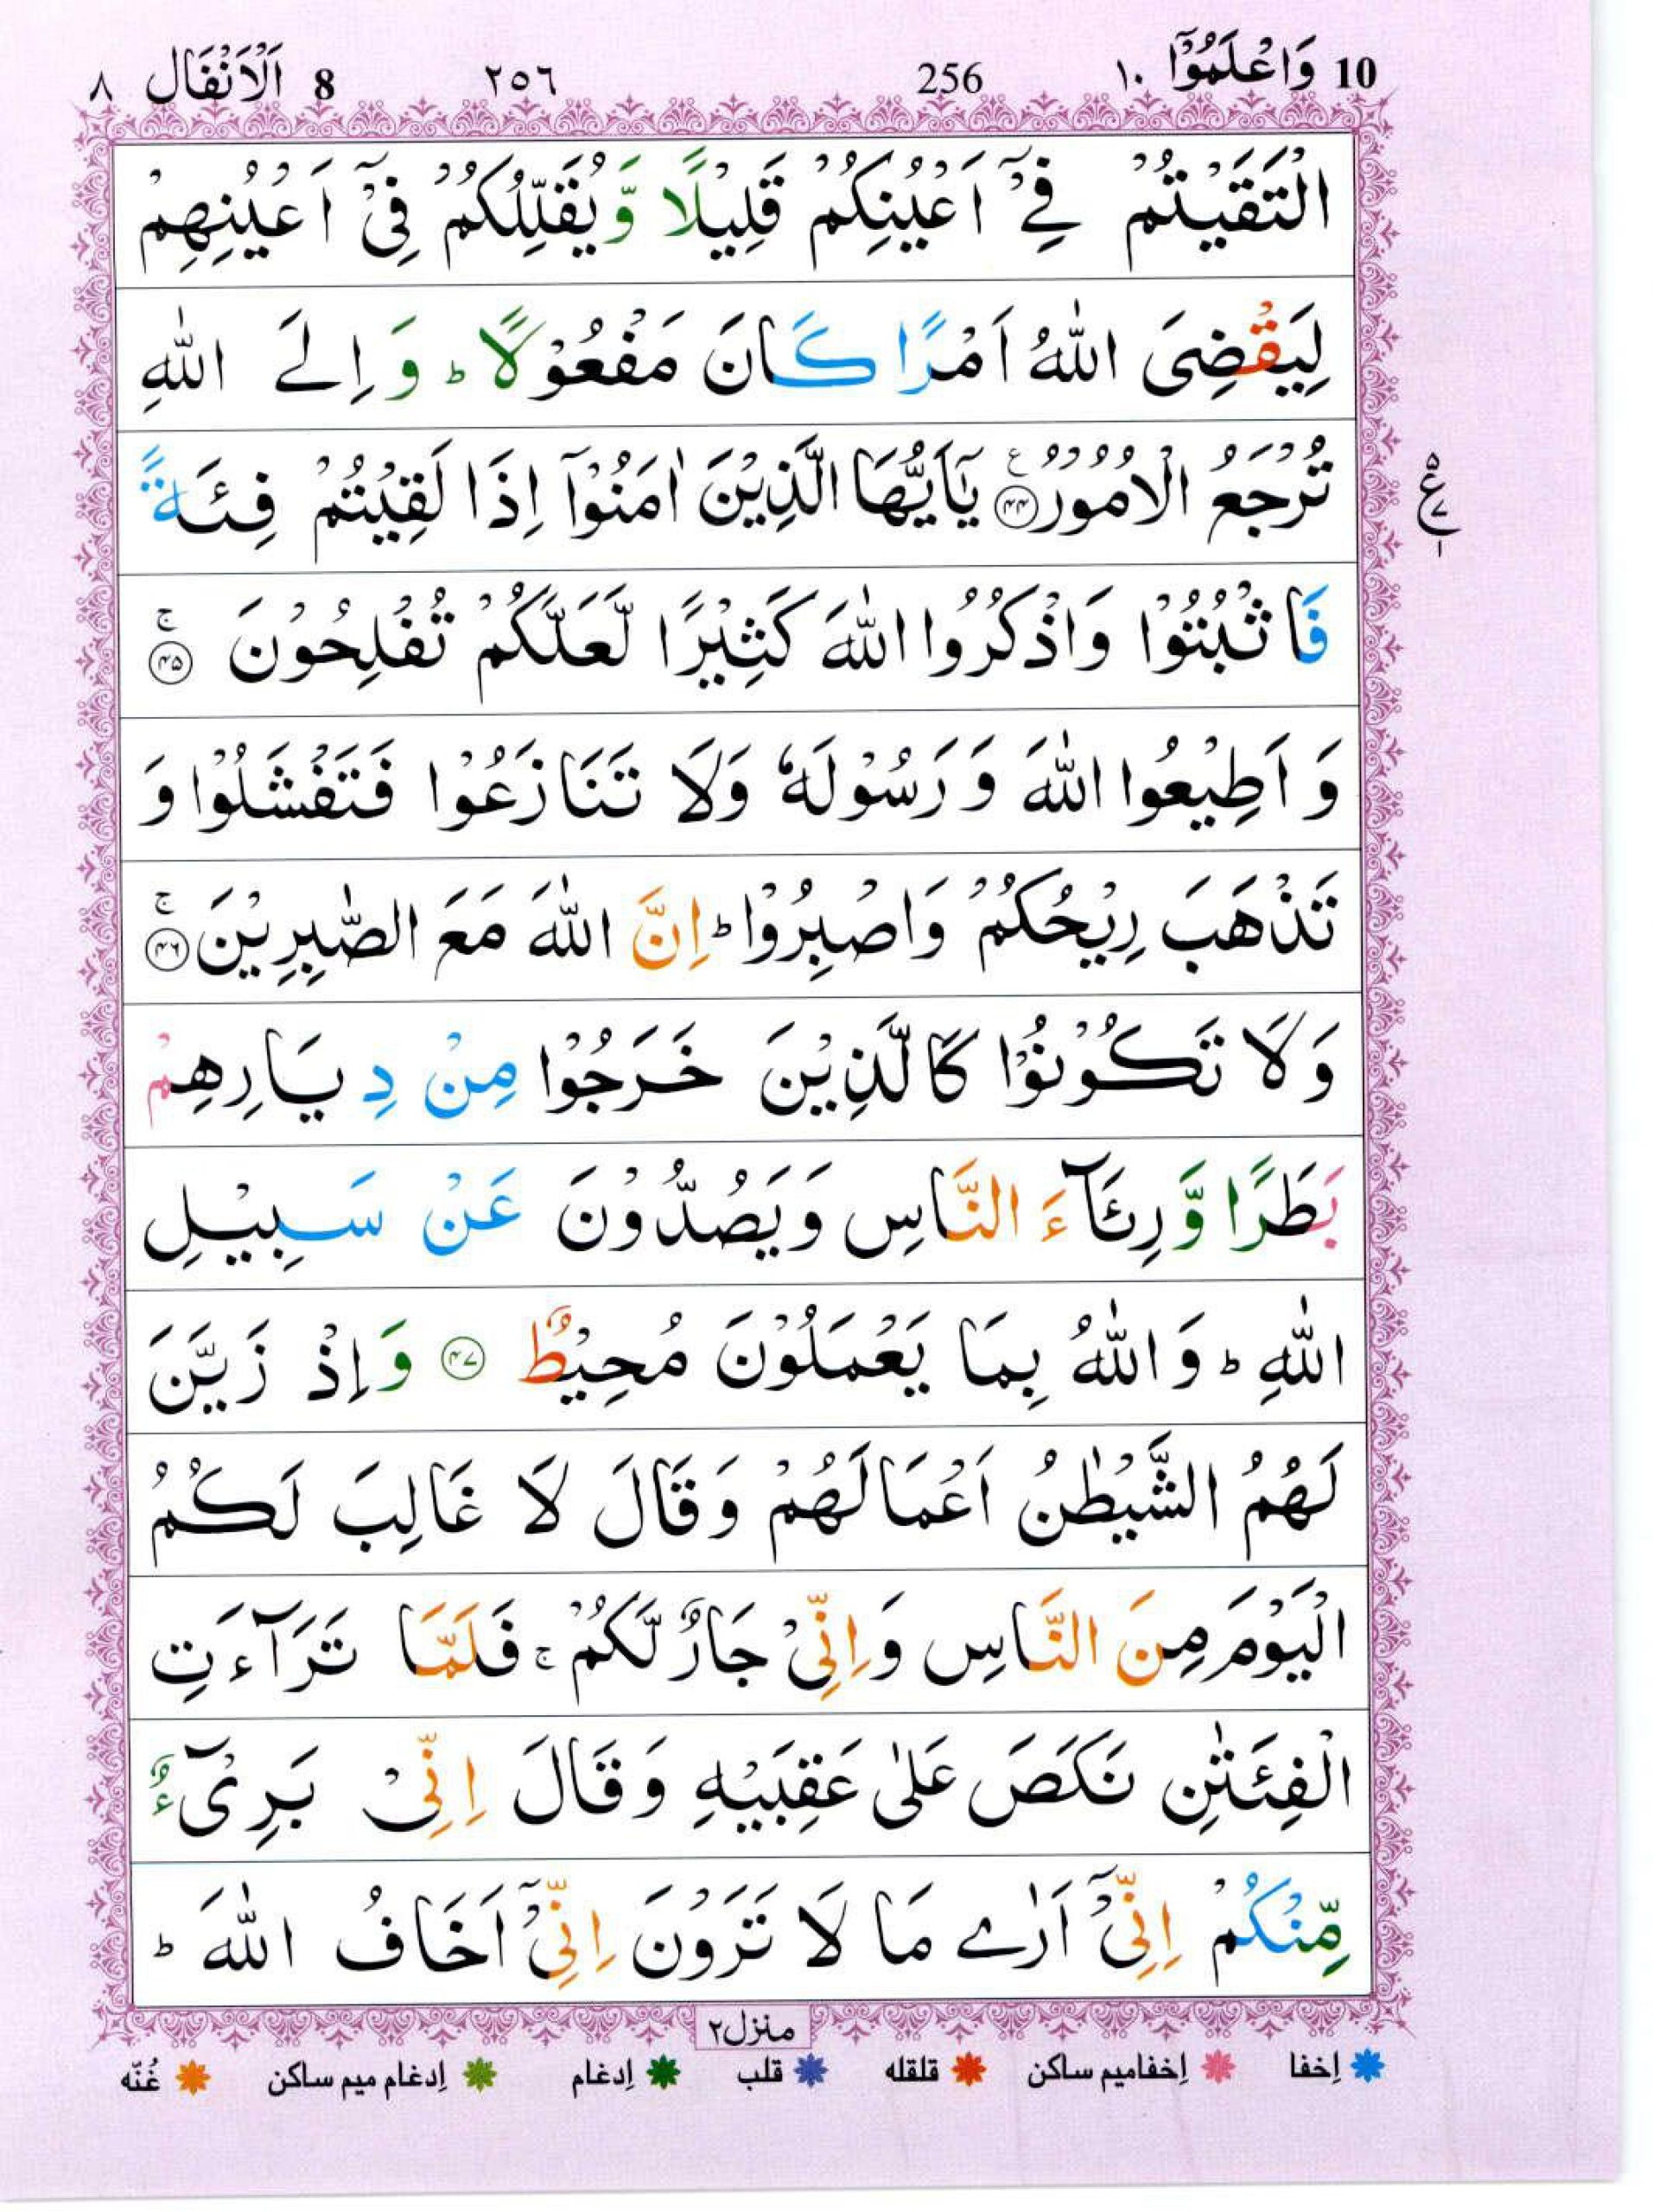 10 وَاعْلَمُوْۤا ١٠ 256 ٢٥٦ 8 اَلْاَنْفَال ٨
الْتَقَيْتُمْ فِيْۤ اَعْيُنِكُمْ قَلِيْلًا وَّيُقَلِّلُكُمْ فِيْۤ اَعْيُنِهِمْ
لِيَقْضِىَ اللّٰهُ اَمْرًا كَانَ مَفْعُوْلًا ؕ وَ اِلَے اللّٰهِ
تُرْجَعُ الْاُمُوْرُ ﴿۴۴﴾ ع يٰۤاَيُّهَا الَّذِيْنَ اٰمَنُوْۤا اِذَا لَقِيْتُمْ فِئَةً
فَاثْبُتُوْا وَاذْكُرُوا اللّٰهَ كَثِيْرًا لَّعَلَّكُمْ تُفْلِحُوْنَ ۚ ﴿۴۵﴾
وَ اَطِيْعُوا اللّٰهَ وَ رَسُوْلَهٗ وَلَا تَنَازَعُوْا فَتَفْشَلُوْا وَ
تَذْهَبَ رِيْحُكُمْ وَاصْبِرُوْا ؕ اِنَّ اللّٰهَ مَعَ الصّٰبِرِيْنَ ۚ ﴿۴۶﴾
وَلَا تَكُوْنُوْا كَالَّذِيْنَ خَرَجُوْا مِنْ دِيَارِهِمْ
بَطَرًا وَّرِئَآءَ النَّاسِ وَيَصُدُّوْنَ عَنْ سَبِيْلِ
اللّٰهِ ؕ وَ اللّٰهُ بِمَا يَعْمَلُوْنَ مُحِيْطٌ ﴿۴۷﴾ وَ اِذْ زَيَّنَ
لَهُمُ الشَّيْطٰنُ اَعْمَالَهُمْ وَقَالَ لَا غَالِبَ لَكُمُ
الْيَوْمَ مِنَ النَّاسِ وَ اِنِّيْ جَارٌ لَّكُمْ ۚ فَلَمَّا تَرَآءَتِ
الْفِئَتٰنِ نَكَصَ عَلٰى عَقِبَيْهِ وَقَالَ اِنِّيْ بَرِيْٓءٌ
مِّنْكُمْ اِنِّيْۤ اَرٰے مَا لَا تَرَوْنَ اِنِّيْۤ اَخَافُ اللّٰهَ ؕ
ع ۵ ۷ ۱
منزل٢
اِخفا اِخفامیم ساکن قلقله قلب اِدغام اِدغام میم ساکن غُنّه